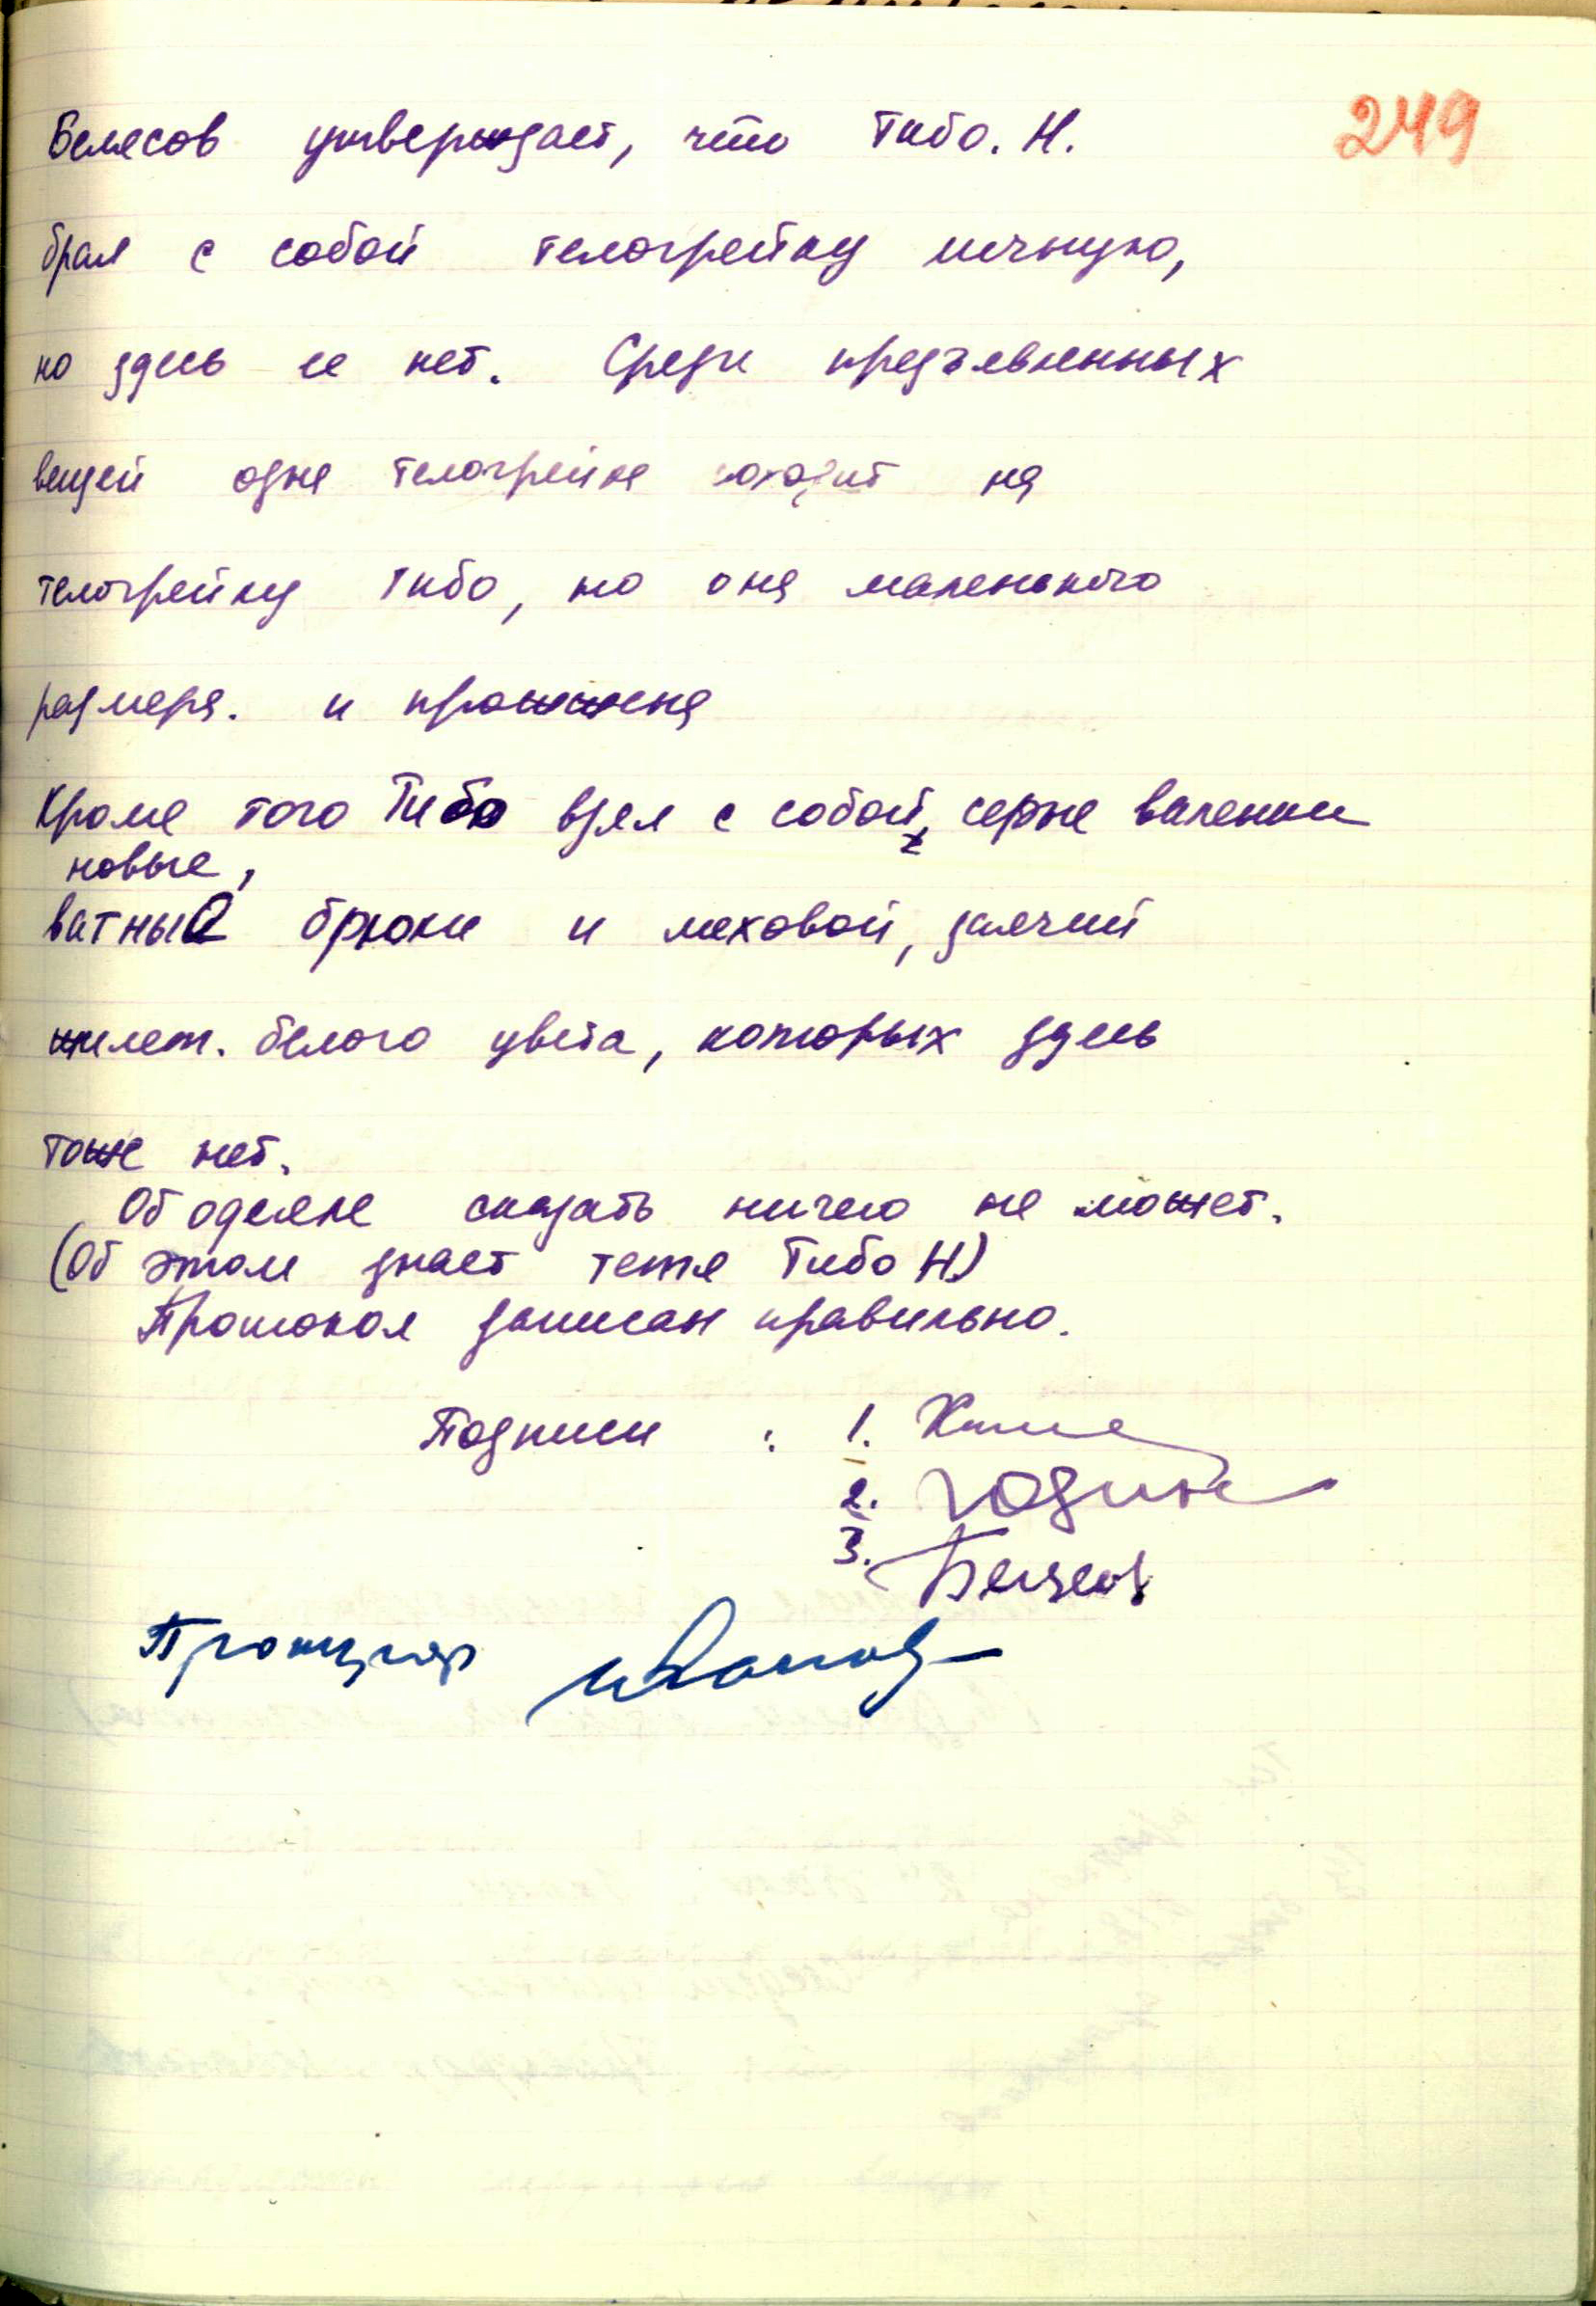 249
Белясов утверждает, что Тибо. Н.
брал с собой телогрейку личную,
но здесь ее нет. Среди предъявленных
вещей одна телогрейка походит на
телогрейку Тибо, но она маленького
размера. и прожжена
Кроме того Тибо взял с собой, серые валенки
новые,
ватные брюки и меховой, заячий
жилет. белого цвета, которых здесь
тоже нет.
Об одеяле сказать ничего не может.
(Об этом знает тетя Тибо Н)
Протокол записан правильно.
Подписи : 1.
2. Юдин
3. Белясов
Прокурор Иванов